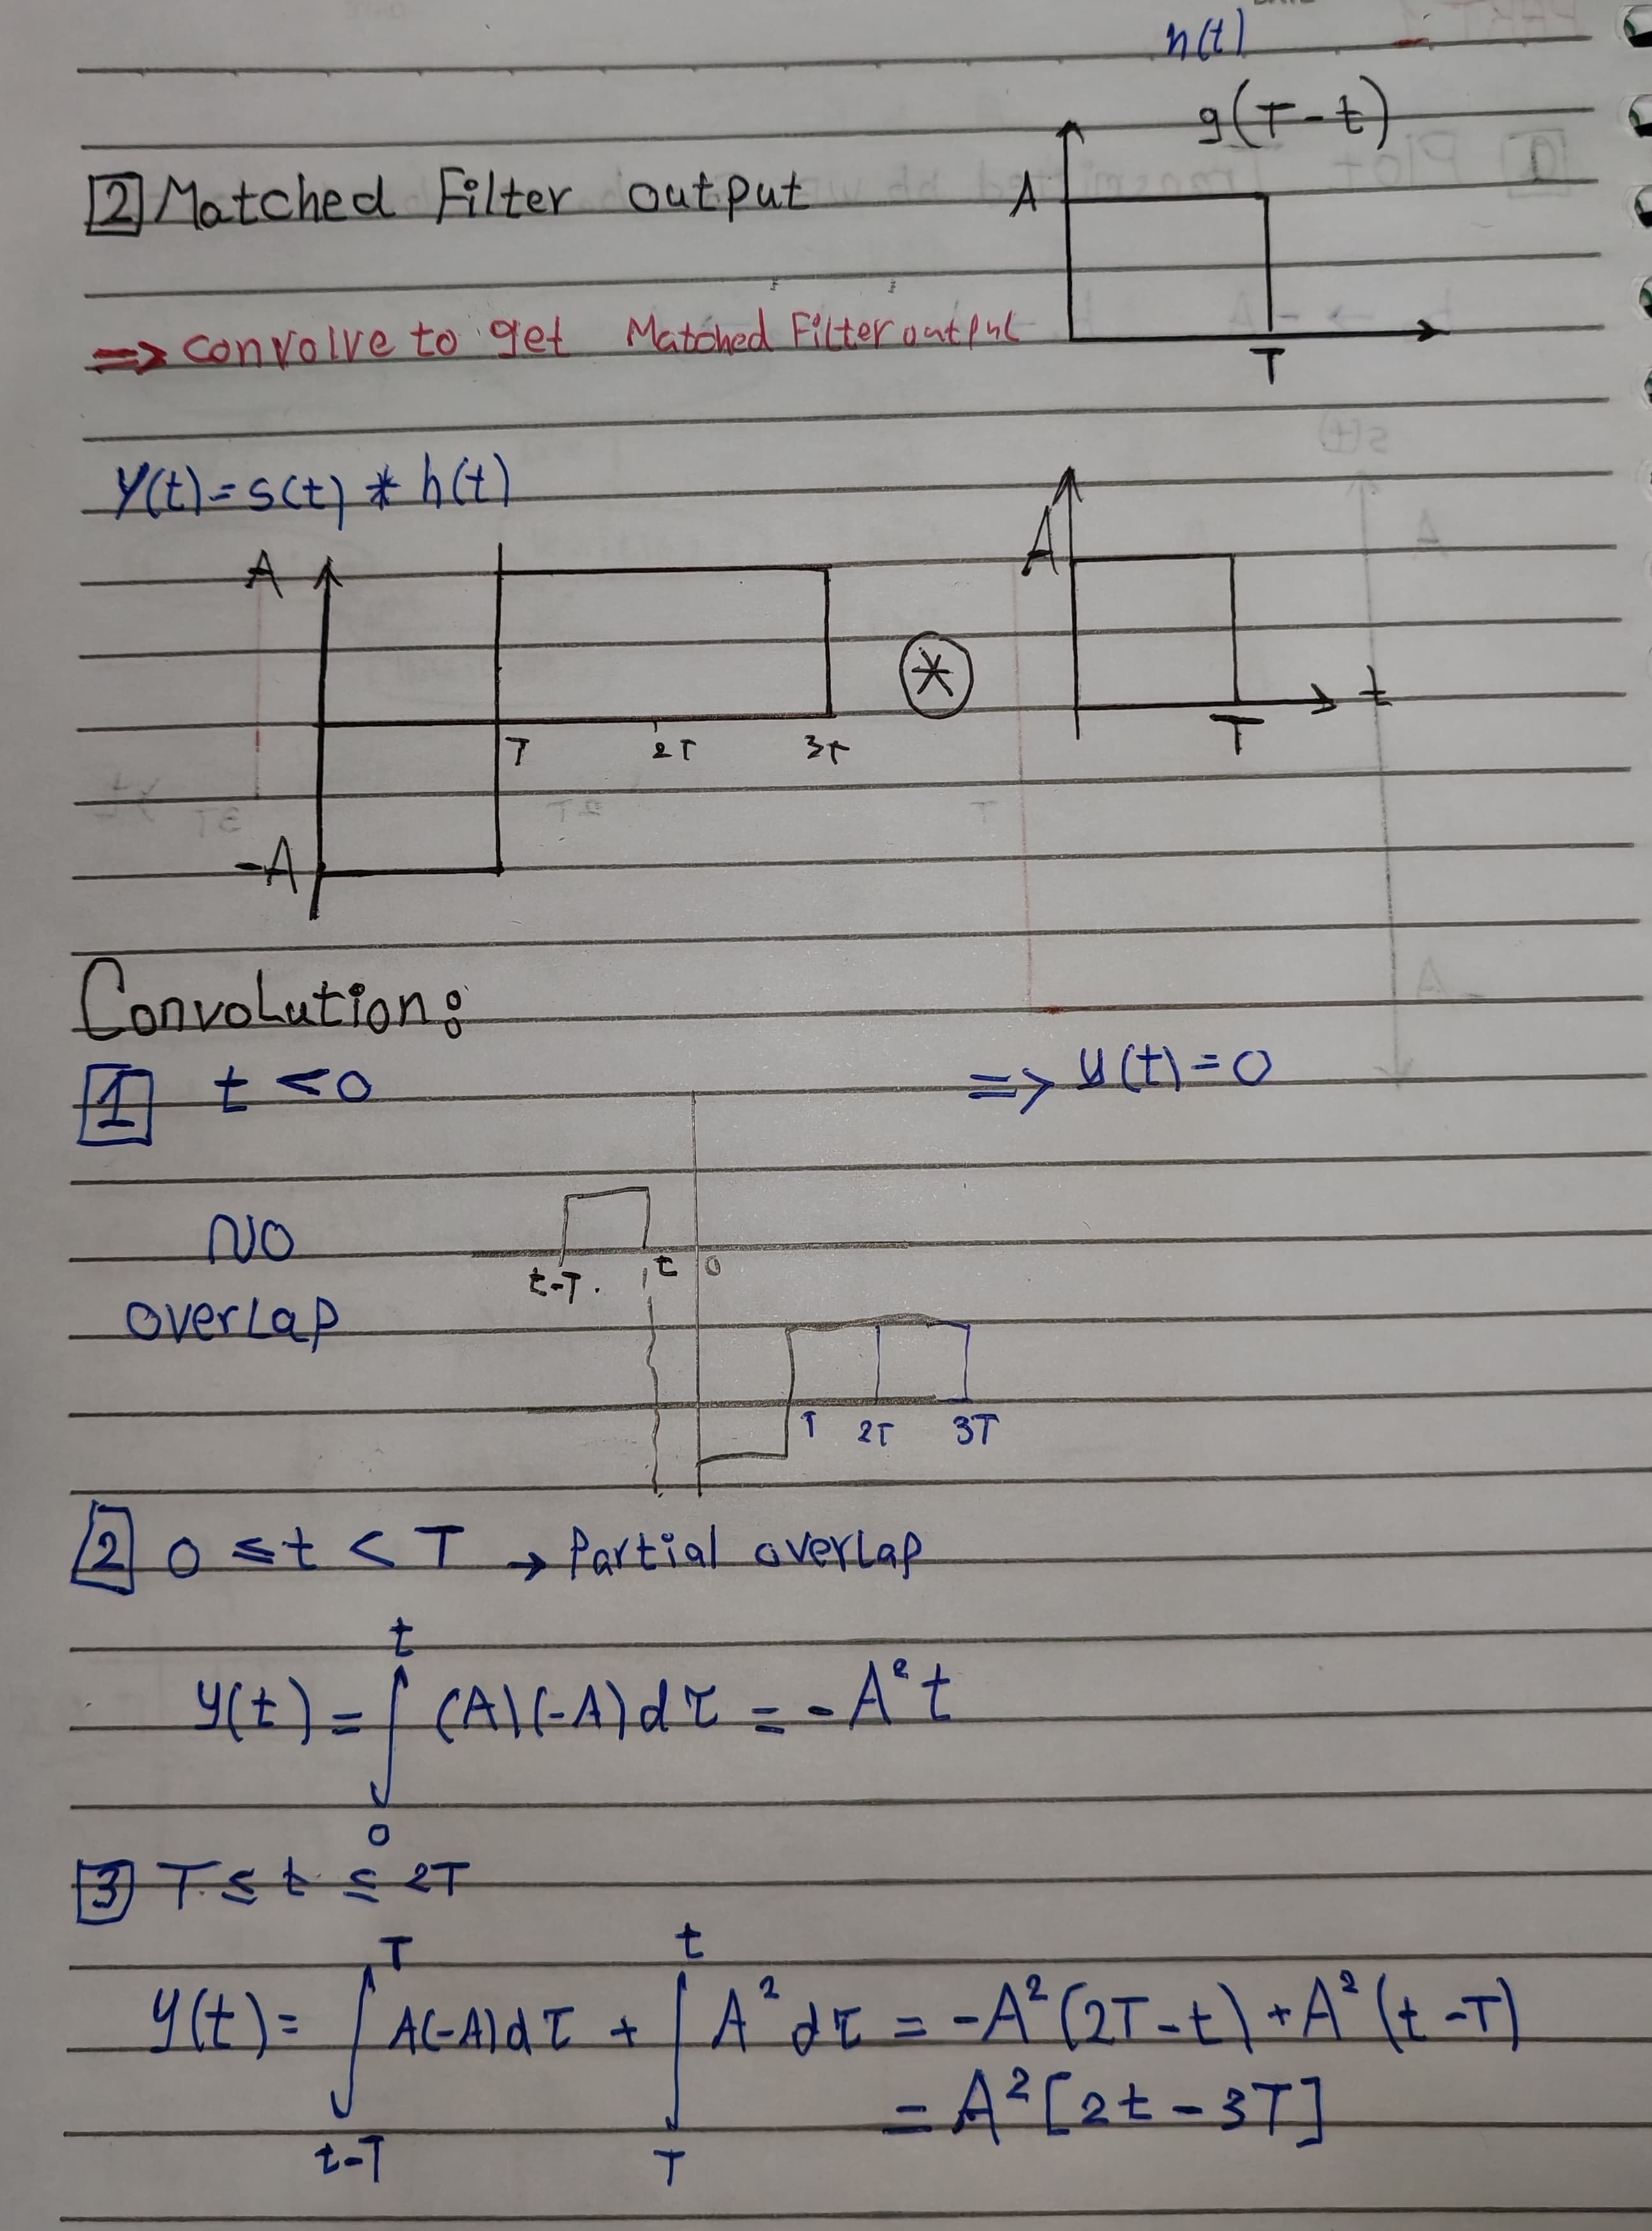 h(t)
g(T-t)
2 Matched Filter output
A
=> convolve to get Matched Filter output
T
Y(t)=s(t) * h(t)
A
A
*
t
T 2T 3T
T
-A
Convolution:
1 t <0 => y(t)=0
NO
t-T. t 0
overlap
T 2T 3T
2 0 ≤ t < T → Partial overlap
t
y(t) = ∫ (A)(-A)dτ = -A²t
0
3 T ≤ t ≤ 2T
T t
y(t)= ∫ A(-A)dτ + ∫ A² dτ = -A²(2T-t) + A²(t-T)
= A²[2t-3T]
t-T T